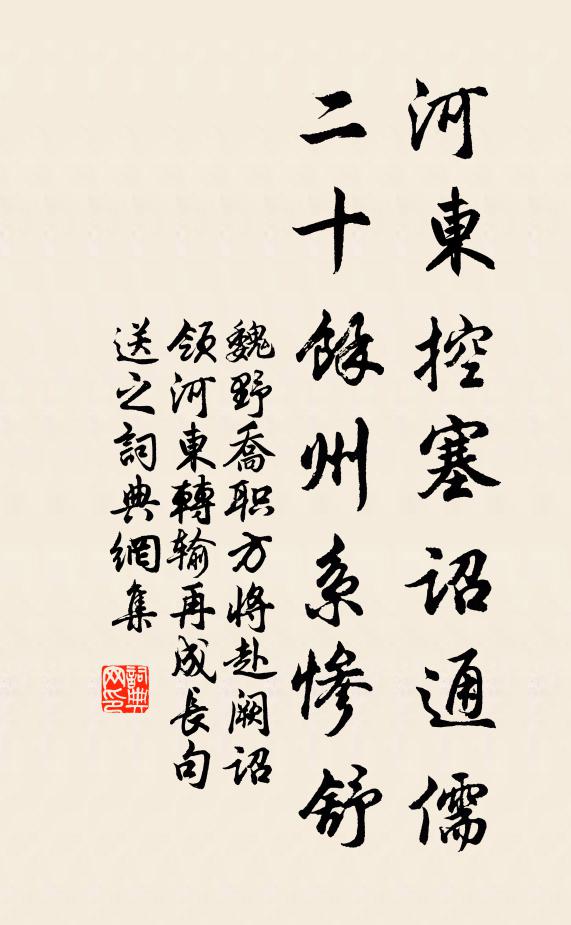 河東控塞詔通儒
二十餘州系慘舒
魏野喬职方將赴阙詔
領河東轉输再成長句
送之詞典網集
詞典
网印